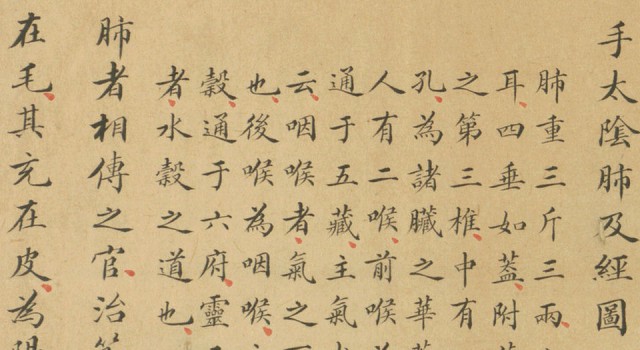 手太陰肺及經圖
肺重三斤三兩
耳四垂如蓋附
之第三椎中有
孔為諸臟之華
人有二喉前喉
通于五藏主氣
云咽喉者氣之
也後喉為咽喉
穀通于六府靈
者水穀之道也
肺者相傳之官治
在毛其充在皮為